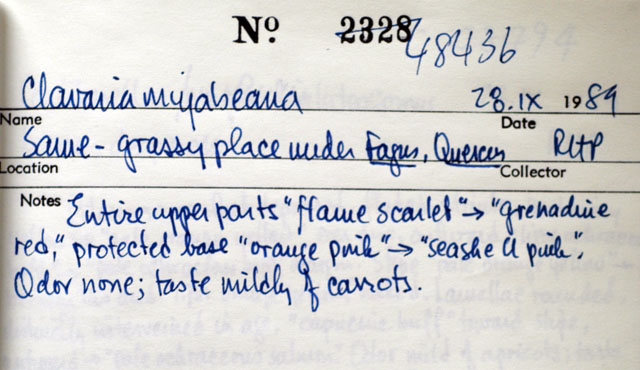 Nº 2328 48436
Clavaria miyabeana 28.IX 1989
Name Date
Same - grassy place under Fagus, Quercus RHP
Location Collector
Notes Entire upper parts "flame scarlet" → "grenadine
red," protected base "orange pink" → "seashell pink".
Odor none; taste mildly of carrots.